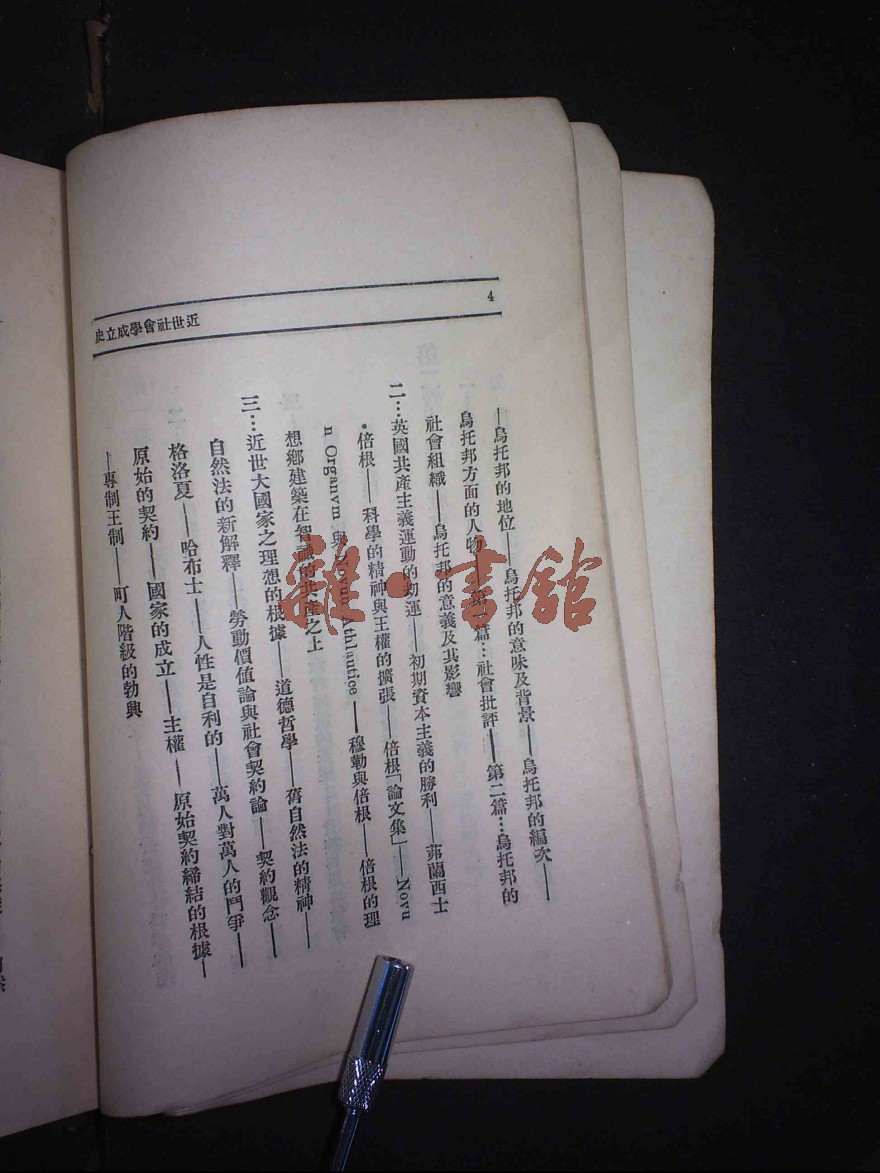 4
近世社會學成立史
—烏托邦的地位——烏托邦的意味及背景——烏托邦的編次——
烏托邦方面的人物——第一篇…社會批評——第二篇…烏托邦的
社會組織——烏托邦的意義及其影響
二…英國共產主義運動的動運——初期資本主義的勝利——茀蘭西士
•倍根——科學的精神與王權的擴張——倍根「論文集」——Novu
n Organvm 與 Novun Athlantice——穆勒與倍根——倍根的理
想鄉建築在智識的共產之上
三…近世大國家之理想的根據——道德哲學——舊自然法的精神——
自然法的新解釋——勞動價值論與社會契約論——契約觀念——
格洛夏——哈布士——人性是自利的——萬人對萬人的鬥爭——
原始的契約——國家的成立——主權——原始契約締結的根據—
—專制王制——町人階級的勃興
雜·書館